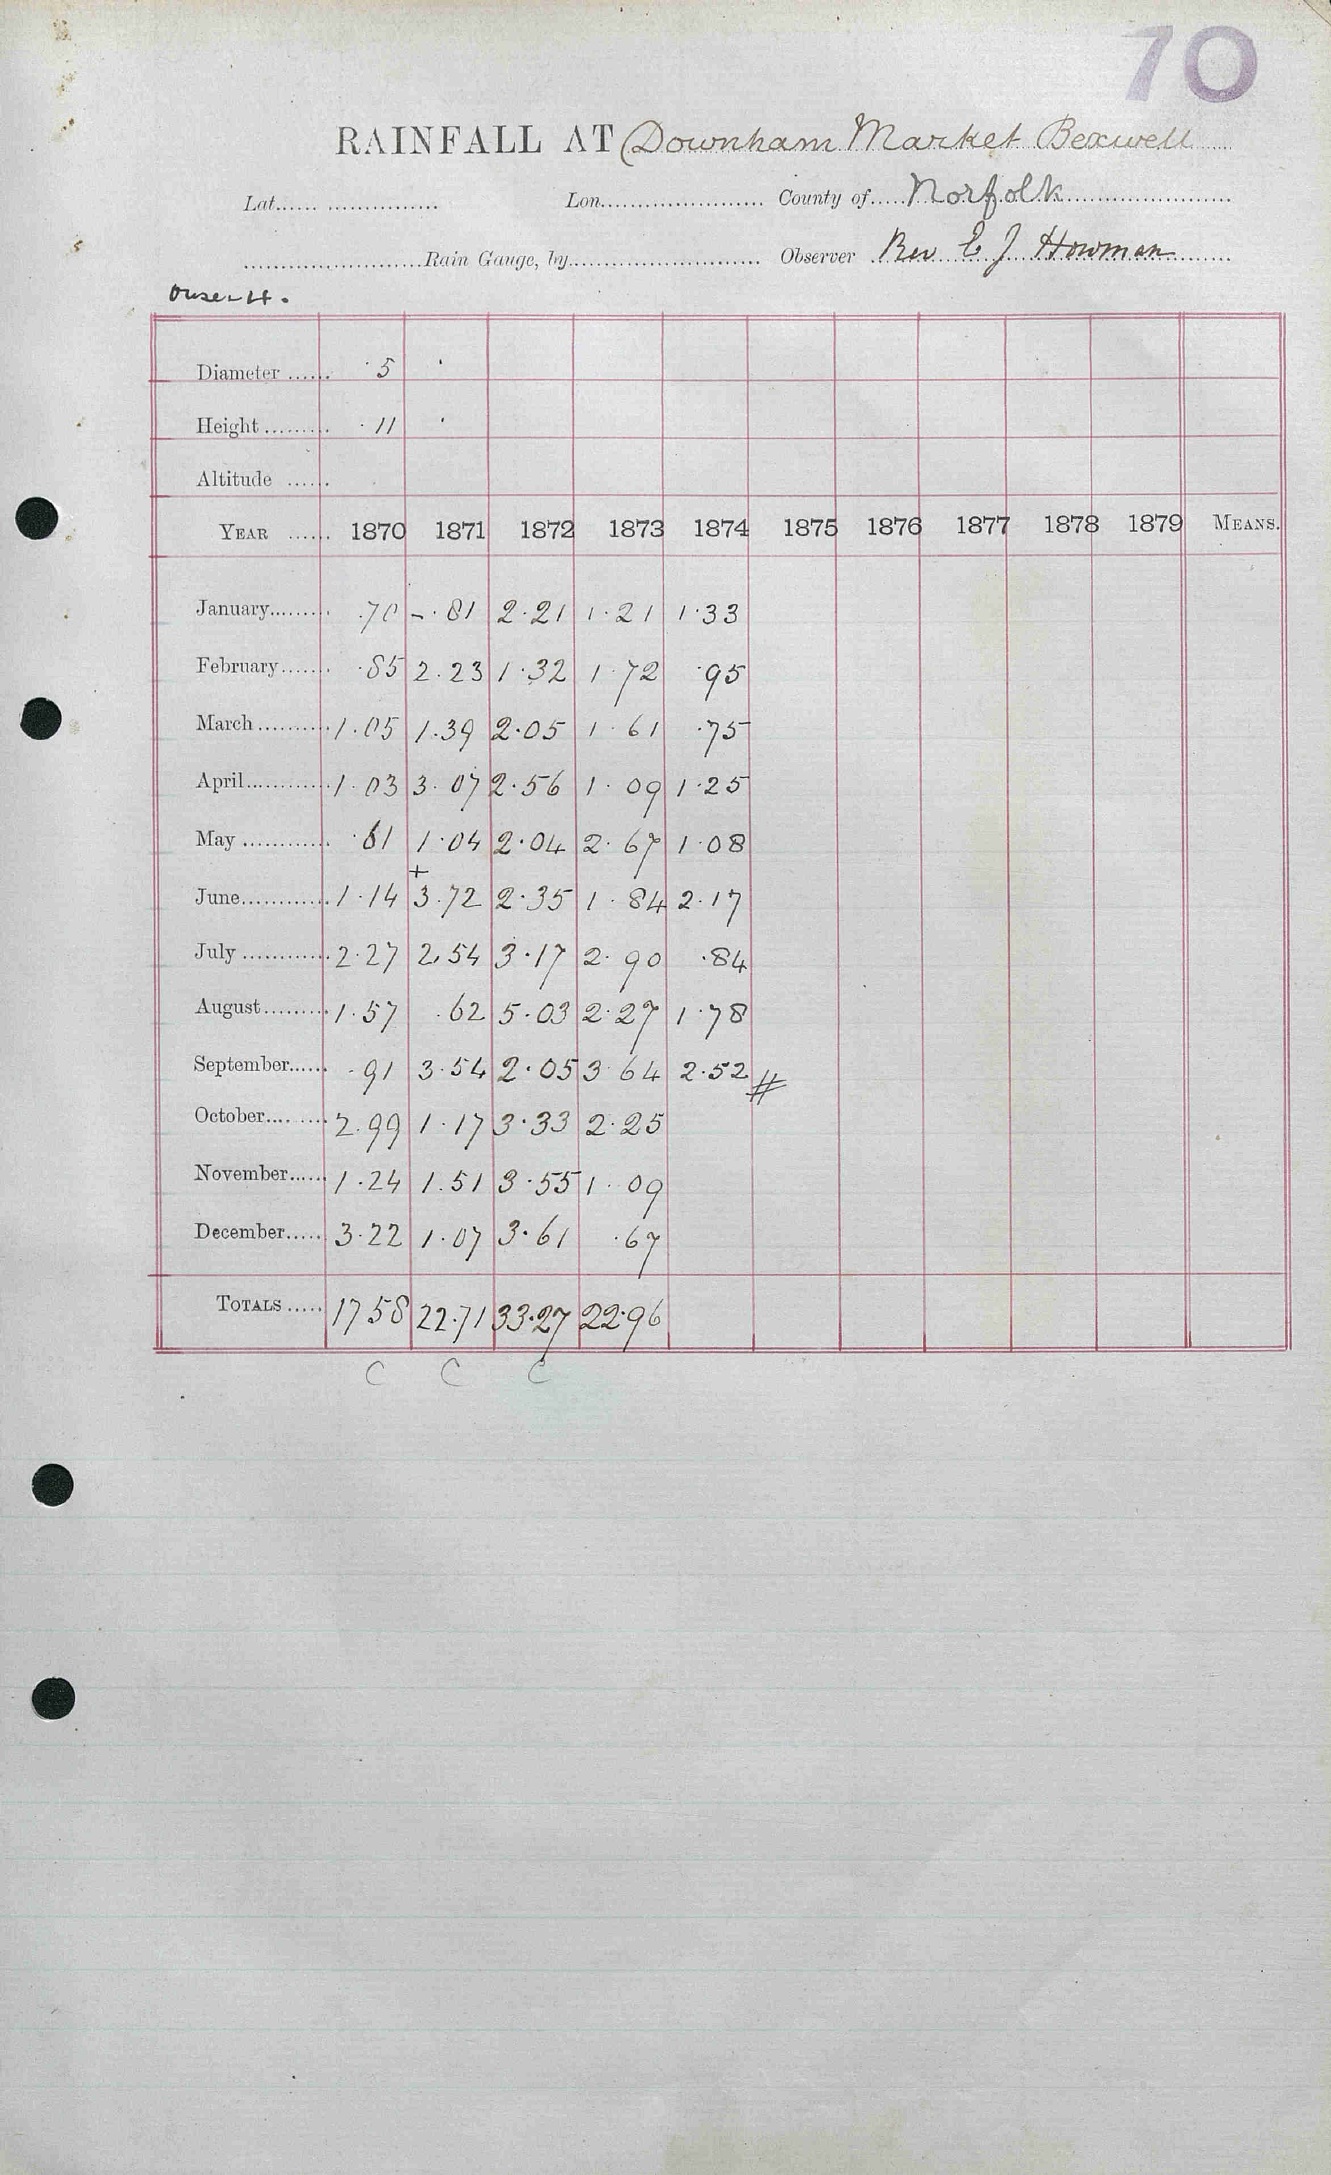 70
RAINFALL AT Downham Market Bexwell
Lat. Lon. County of Norfolk
Rain Gauge, by Observer Rev E J Howman
Ouse 4.
Diameter 5 ·
Height 11 ·
Altitude
YEAR 1870 1871 1872 1873 1874 1875 1876 1877 1878 1879 MEANS.
January .70 – .81 2.21 1.21 1.33
February .85 2.23 1.32 1.72 .95
March 1.05 1.39 2.05 1.61 .75
April 1.03 3.07 2.56 1.09 1.25
May .61 1.04 2.04 2.67 1.08
+
June 1.14 3.72 2.35 1.84 2.17
July 2.27 2.54 3.17 2.90 .84
August 1.57 .62 5.03 2.27 1.78
September .91 3.54 2.05 3.64 2.52 #
October 2.99 1.17 3.33 2.25
November 1.24 1.51 3.55 1.09
December 3.22 1.07 3.61 .67
TOTALS 17 58 22.71 33.27 22.96
C C C